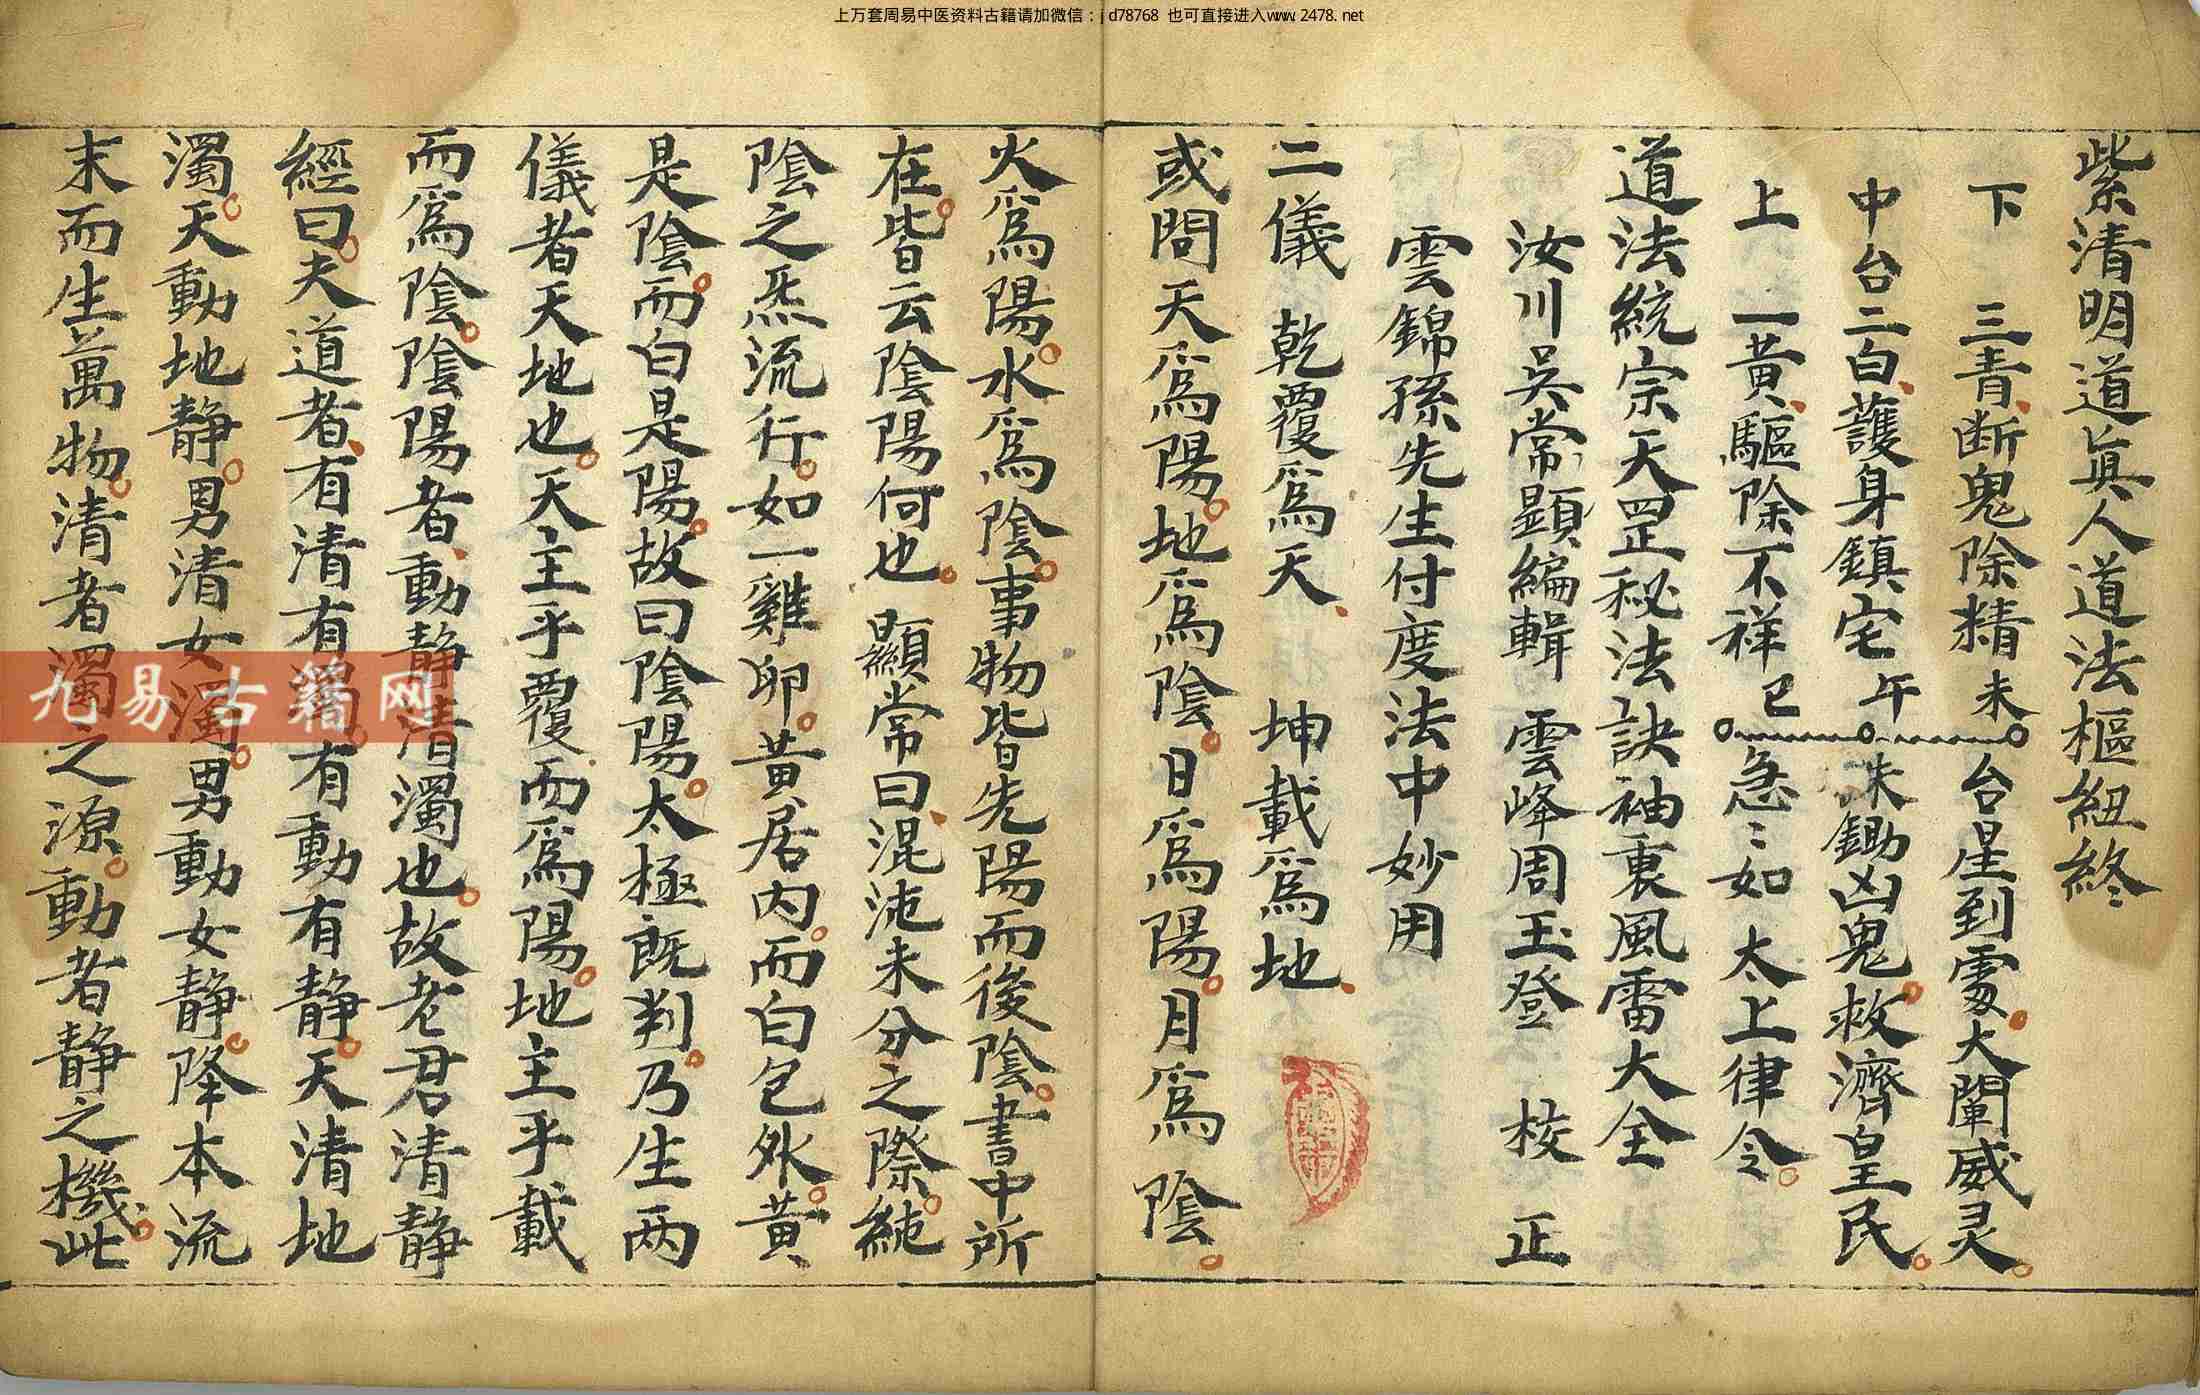 上万套周易中医资料古籍请加微信：jd78768 也可直接进入www.2478.net
紫清明道眞人道法樞紐終
下 三青断鬼除精 未 台星到處大闡威灵
中台二白護身鎮宅 午 未鋤凶鬼救濟皇民
上 一黄驅除不祥 巳 急〻如 太上律令
道法統宗天罡秘法訣袖裏風雷大全
汝川吳常顕編輯 雲峰周玉登 校 正
雲錦孫先生付度法中妙用
二儀 乾覆爲天 坤載爲地
或問天爲陽地爲陰日爲陽月爲陰
火爲陽水爲陰事物皆先陽而後陰書中所
在皆云陰陽何也 顯常曰混沌未分之際純
陰之炁流行如一雞卵黄居内而白包外黄
是陰而白是陽故曰陰陽太極既判乃生两
儀者天地也天主乎覆而爲陽地主乎載
而爲陰陰陽者動静清濁也故老君清静
經曰夫道者有清有濁有動有静天清地
濁天動地静男清女濁男動女静降本流
末而生萬物清者濁之源動者静之機此
九易古籍网